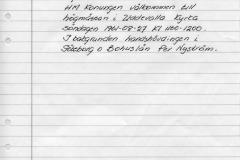 HM Konungen välkommen till
högmässan i Uddevalla Kyrka
Söndagen 1961-08-27 Kl 1100-1200.
I bakgrunden landshövdingen i
Göteborg o Bohuslän Per Nyström.